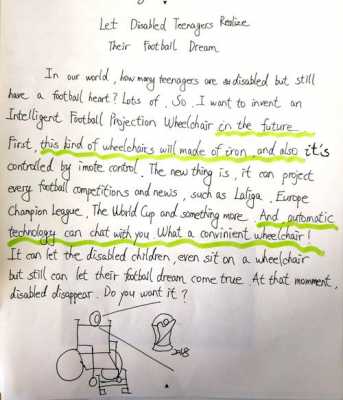 Let Disabled Teenagers Realize
Their Football Dream
In our world, how many teenagers are disabled but still
have a football heart? Lots of. So, I want to invent an
Intelligent Football Projection Wheelchair in the future
First, this kind of wheelchairs will made of iron, and also it's
controlled by imote control. The new thing is, it can project
every football competitions and news, such as Laliga, Europe
Champion League, The World Cup and something more. And automatic
technology can chat with you. What a convinient wheelchair!
It can let the disabled children, even sit on a wheelchair
but still can let their football dream come true. At that momment,
disabled disappear. Do you want it?
2018